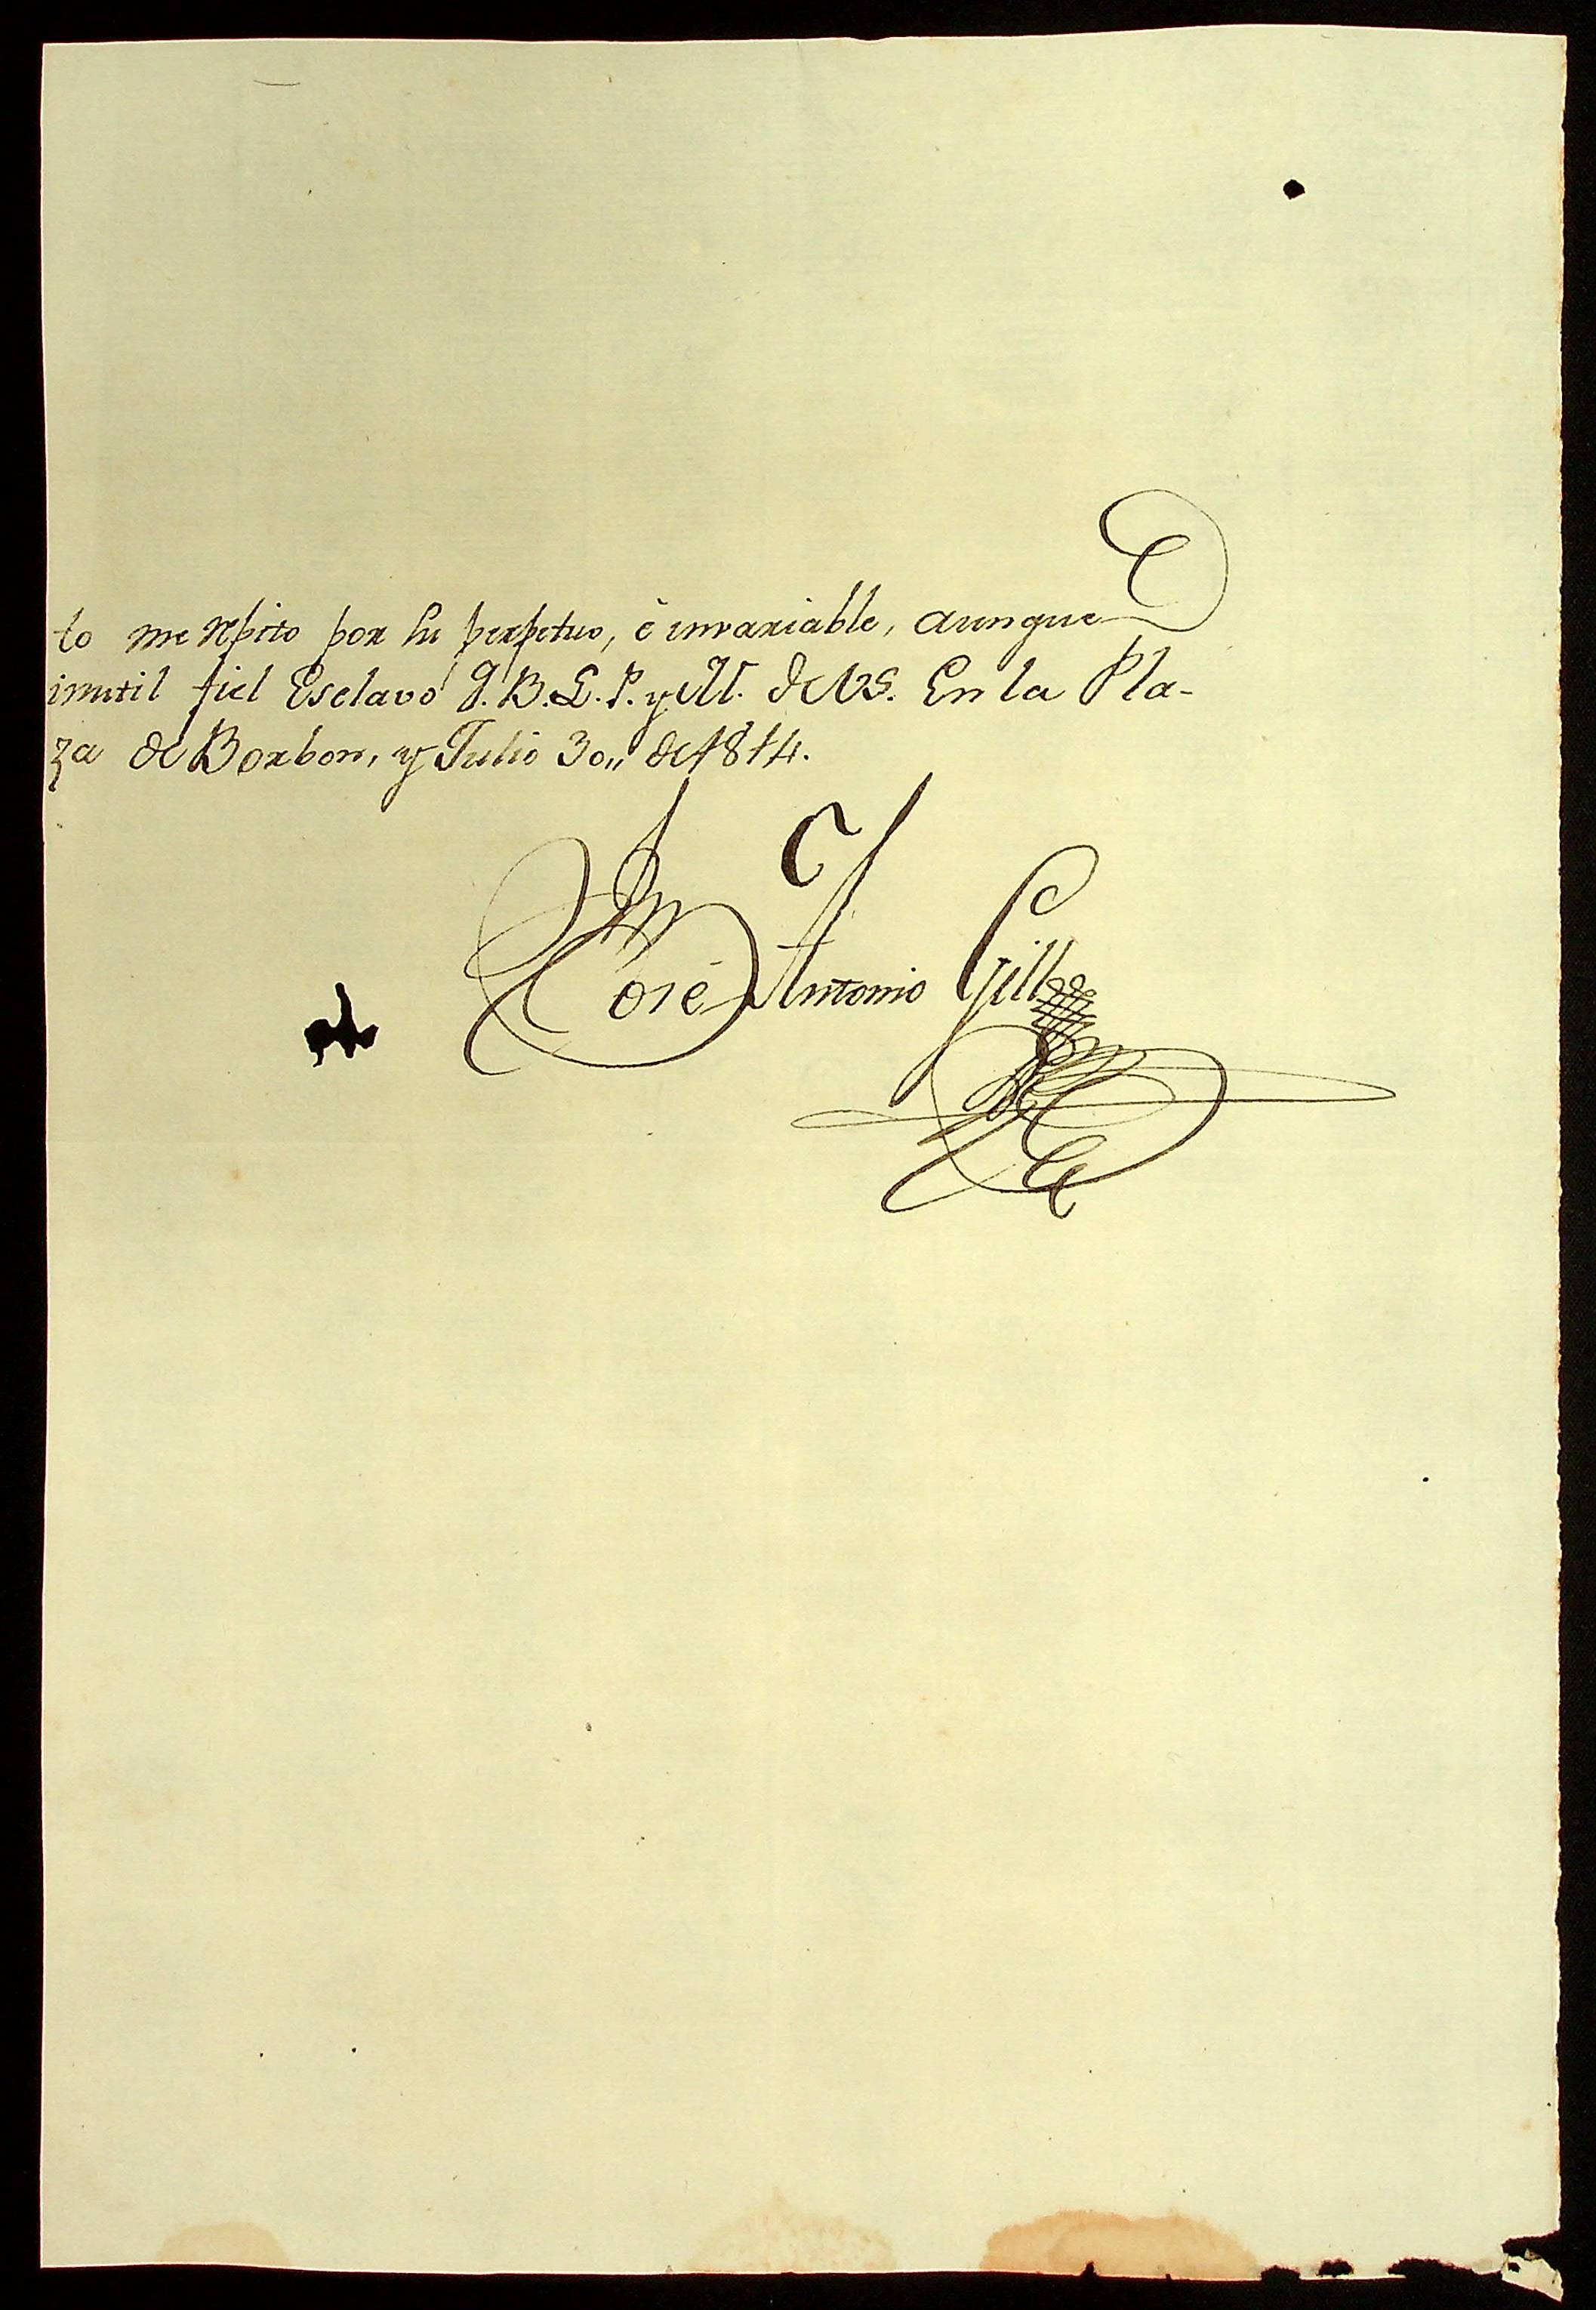 to me repito por su perpetuo, è invariable, aunque
inutil fiel Esclavo Q.B.L.P. y M. de VS. En la Pla-
za de Borbon, y Julio 30,, de 1814.
José Antonio Gill